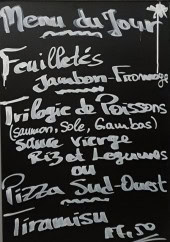 Menu du Jour
Feuilletés
Jambon-Fromage
Trilogie de Poissons
(saumon, Sole, Gambas)
Sauce Vierge
Riz et Legumes
ou
Pizza Sud-Ouest
Tiramisu